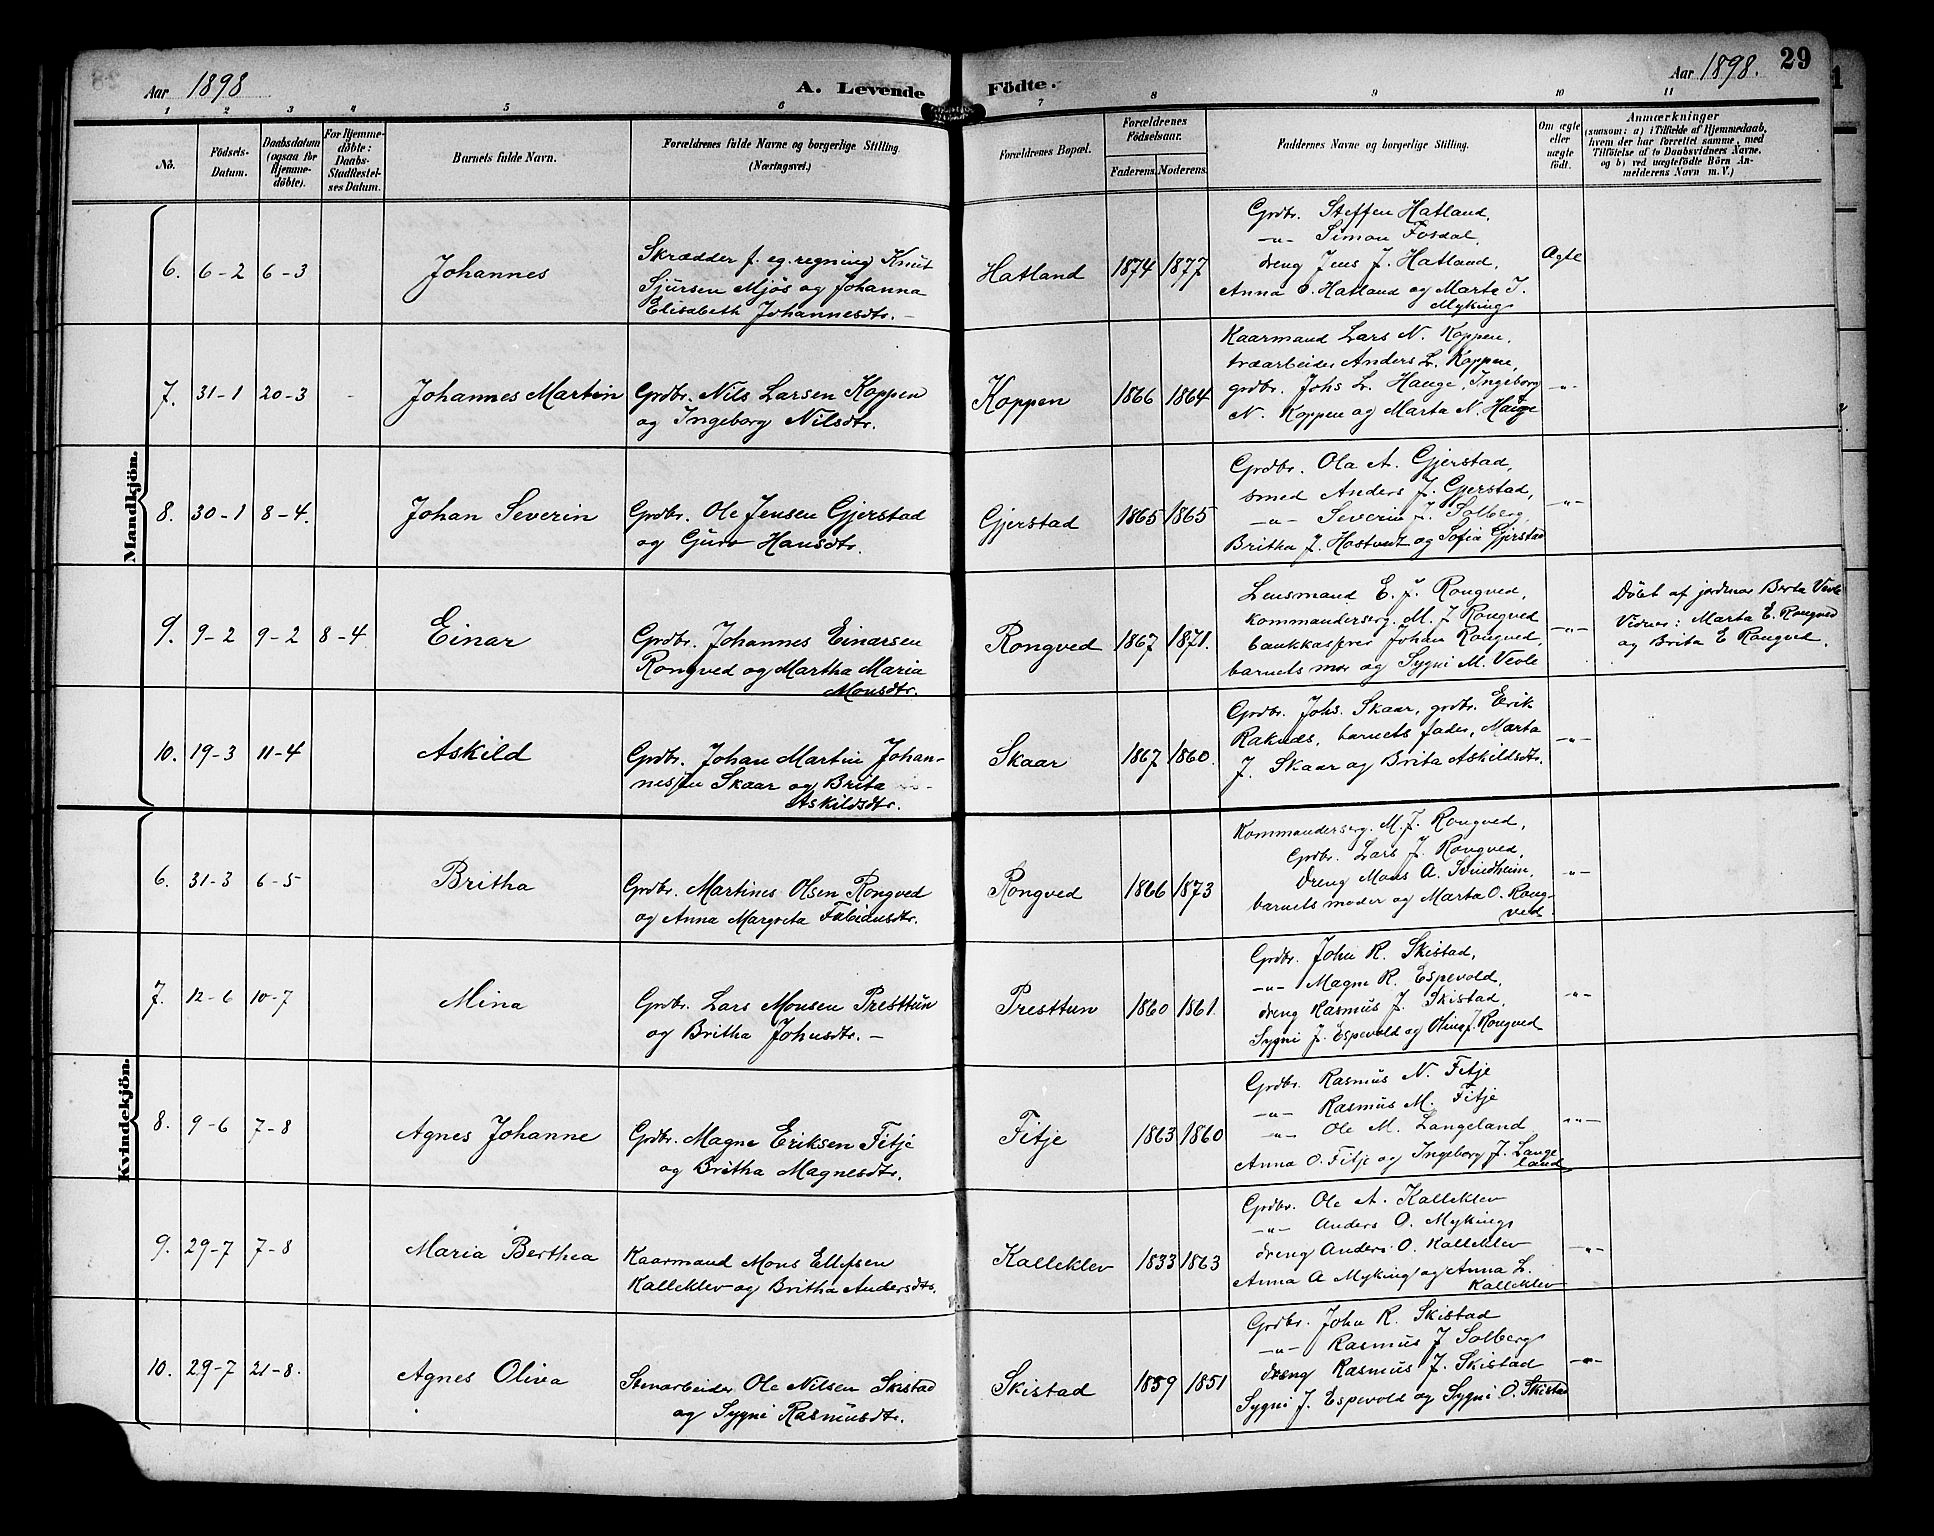 Aar 1898
A. Levende Födte.
Aar 1898.
29
1 2 3 4 5 6 7 8 9 10 11
No.
Födsels-
Datum.
Daabsdatum
(ogsaa for
Hjemme-
döbte).
For Hjemme-
döbte:
Daabs-
Stadfestel-
ses Datum.
Barnets fulde Navn.
Forældrenes fulde Navne og borgerlige Stilling
(Næringsvei.)
Forældrenes Bopæl.
Forældrenes
Födselsaar.
Faderens. Moderens.
Faddernes Navne og borgerlige Stilling.
Om ægte
eller
uægte
födt.
Anmærkninger
(saasom: a) i Tilfælde af Hjemmedaab,
hvem der har forrettet samme, med
Tilföielse af to Daabsvidners Navne.
og b) ved uægtefödte Börn An-
melderens Navn m. V.)
Mandkjön.
6. 6-2 6-3
Johannes
Skrædder f. eg. regning Knut
Sjursen Mjös og Johanna
Elisabeth Johannesdtr. -
Hatland 1874 1877
Grdbr. Steffen Hatland,
-"- Simon Fosdal,
dreng Jens J. Hatland,
Anna O. Hatland og Marta J.
Myking
Ægte
7. 31-1 20-3 -
Johannes Martin
Grdbr. Nils Larsen Koppen
og Ingeborg Nilsdtr.
Koppen 1866 1864
Kaarmand Lars N. Koppen,
træarbeider Anders L. Koppen,
grdbr. Johs L. Hauge, Ingeborg
N. Koppen og Marta N. Hauge
-"-
8. 30-1 8-4.
Johan Severin
Grdbr. Ole Jensen Gjerstad
og Guro Hansdtr.
Gjerstad 1865 1865
Grdbr. Ola A. Gjerstad,
smed Anders J. Gjerstad,
-"- Severin J. Solberg,
Britha J. Hostvedt og Sofia Gjerstad
-"-
9. 9-2 9-2 8-4
Einar
Grdbr. Johannes Einarsen
Rongved og Martha Maria
Monsdtr.
Rongved 1867 1871.
Lensmand E. J. Rongved,
kommanderserg. M. J Rongved
bankkasserer Johan Rongved,
barnets mor og Sygni M. Vevle
-"-
Döbt af jordmor Berta Vevle
Vidner: Marta E. Rongved
og Brita E Rongved.
10. 19-3 11-4
Askild
Grdbr. Johan Martin Johan-
nessen Skaar og Brita
Askildsdtr.
Skaar 1867 1860.
Grdbr. Johs. Skaar, grdbr. Erik
Raknes, barnets fader, Marta
J. Skaar og Brita Askildsdtr.
-"-
Kvindekjön.
6. 31-3 6-5
Britha
Grdbr. Martines Olsen Rongved
og Anna Margreta Fabiansdtr.
Rongved 1866 1873
Kommanderserg. M. J. Rongved,
Grdbr. Lars J. Rongved,
Dreng Mons A. Svindheim,
barnets moder og Marta O. Rong-
ved.
-"-
7. 12-6 10-7
Mina
Grdbr. Lars Monsen Presttun
og Britha Johnsdtr. -
Presttun 1860 1861.
Grdbr. John R. Skistad,
-"- Magne R. Espevold,
dreng Rasmus J. Skistad,
Sygni J. Espevold og Olina J. Rongved
-"-
8. 9-6 7-8
Agnes Johanne
Grdbr. Magne Eriksen Fitje
og Britha Magnesdtr.
Fitje 1863 1860
Grdbr. Rasmus N. Fitje
-"- Rasmus M. Fitje
-"- Ole M. Langeland
Anna O. Fitje og Ingeborg J. Lange
land
-"-
9. 29-7 7-8
Maria Berthea
Kaarmand Mons Ellefsen
Kalleklev og Britha Andersdtr.
Kalleklev 1833 1863
Grdbr. Ole A. Kalleklev
-"- Anders O. Myking
dreng Anders O. Kalleklev
Anna A Myking og Anna L.
Kalleklev
-"-
10. 29-7 21-8.
Agnes Oliva
Stenarbeider Ole Nilsen Skistad
og Sygni Rasmusdtr.
Skistad 1859 1851
Grdbr. John R. Skistad
-"- Rasmus J Solberg
dreng Rasmus J. Skistad
Sygni J. Espevold og Sygni O. Skistad
-"-